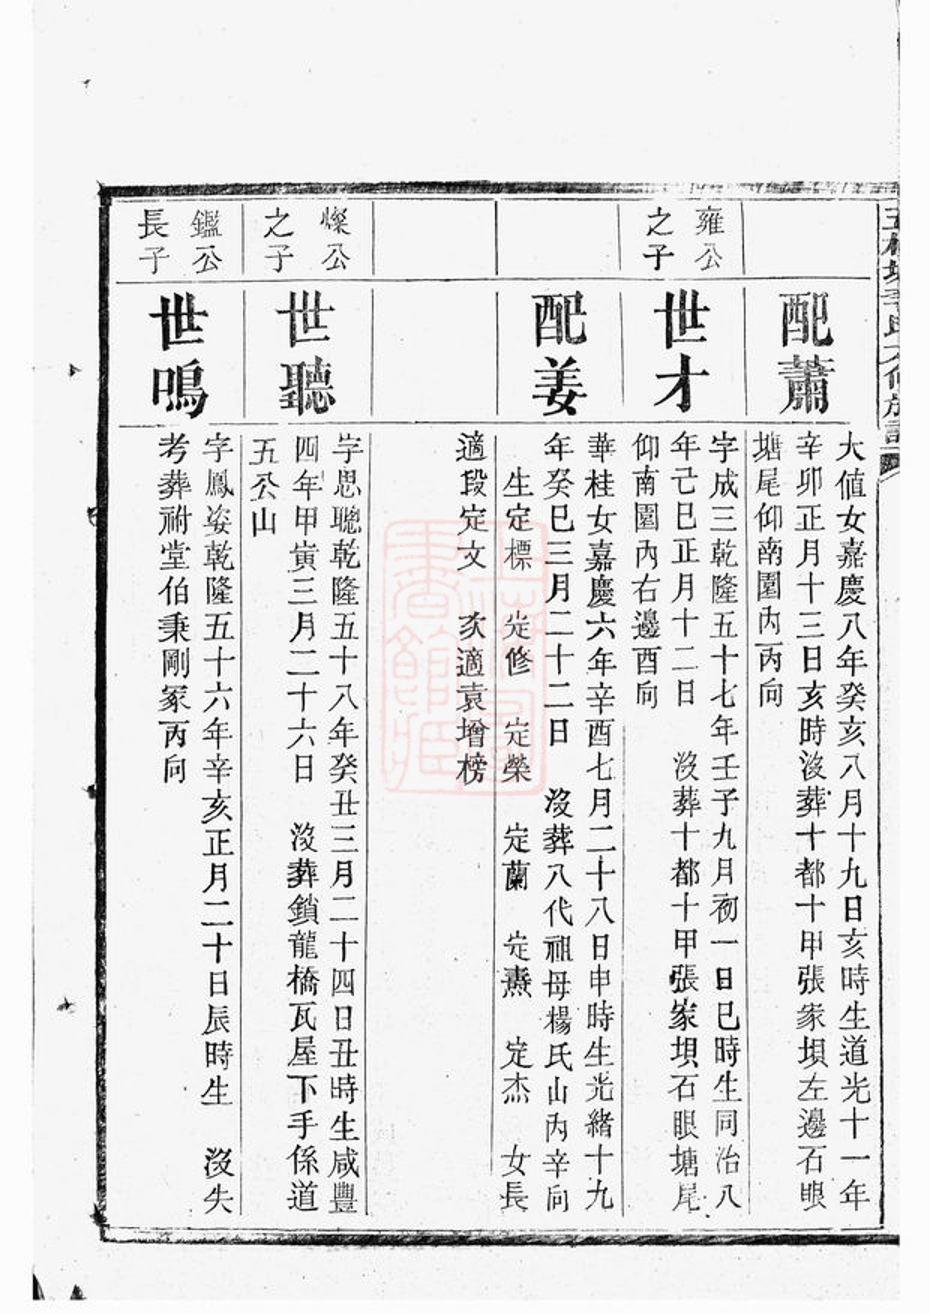 配蕭
大値女嘉慶八年癸亥八月十九日亥時生道光十一年
辛卯正月十三日亥時沒葬十都十甲張家垻左邊石眼
塘尾仰南園內丙向
雍公
之子
世才
字成三乾隆五十七年壬子九月初一日巳時生同治八
年己巳正月十二日 沒葬十都十甲張家垻石眼塘尾
仰南園內右邊酉向
配姜
華桂女嘉慶六年辛酉七月二十八日申時生光緒十九
年癸巳三月二十二日 沒葬八代祖母楊氏山內辛向
生定標 定修 定榮 定蘭 定燾 定杰 女長
適段定文 次適袁增榜
燦公
之子
世聽
字思聰乾隆五十八年癸丑三月二十四日丑時生咸豐
四年甲寅三月二十六日 沒葬鎖龍橋瓦屋下手係道
五公山
鑑公
長子
世鳴
字鳳姿乾隆五十六年辛亥正月二十日辰時生 沒失
考葬祔堂伯秉剛冢丙向